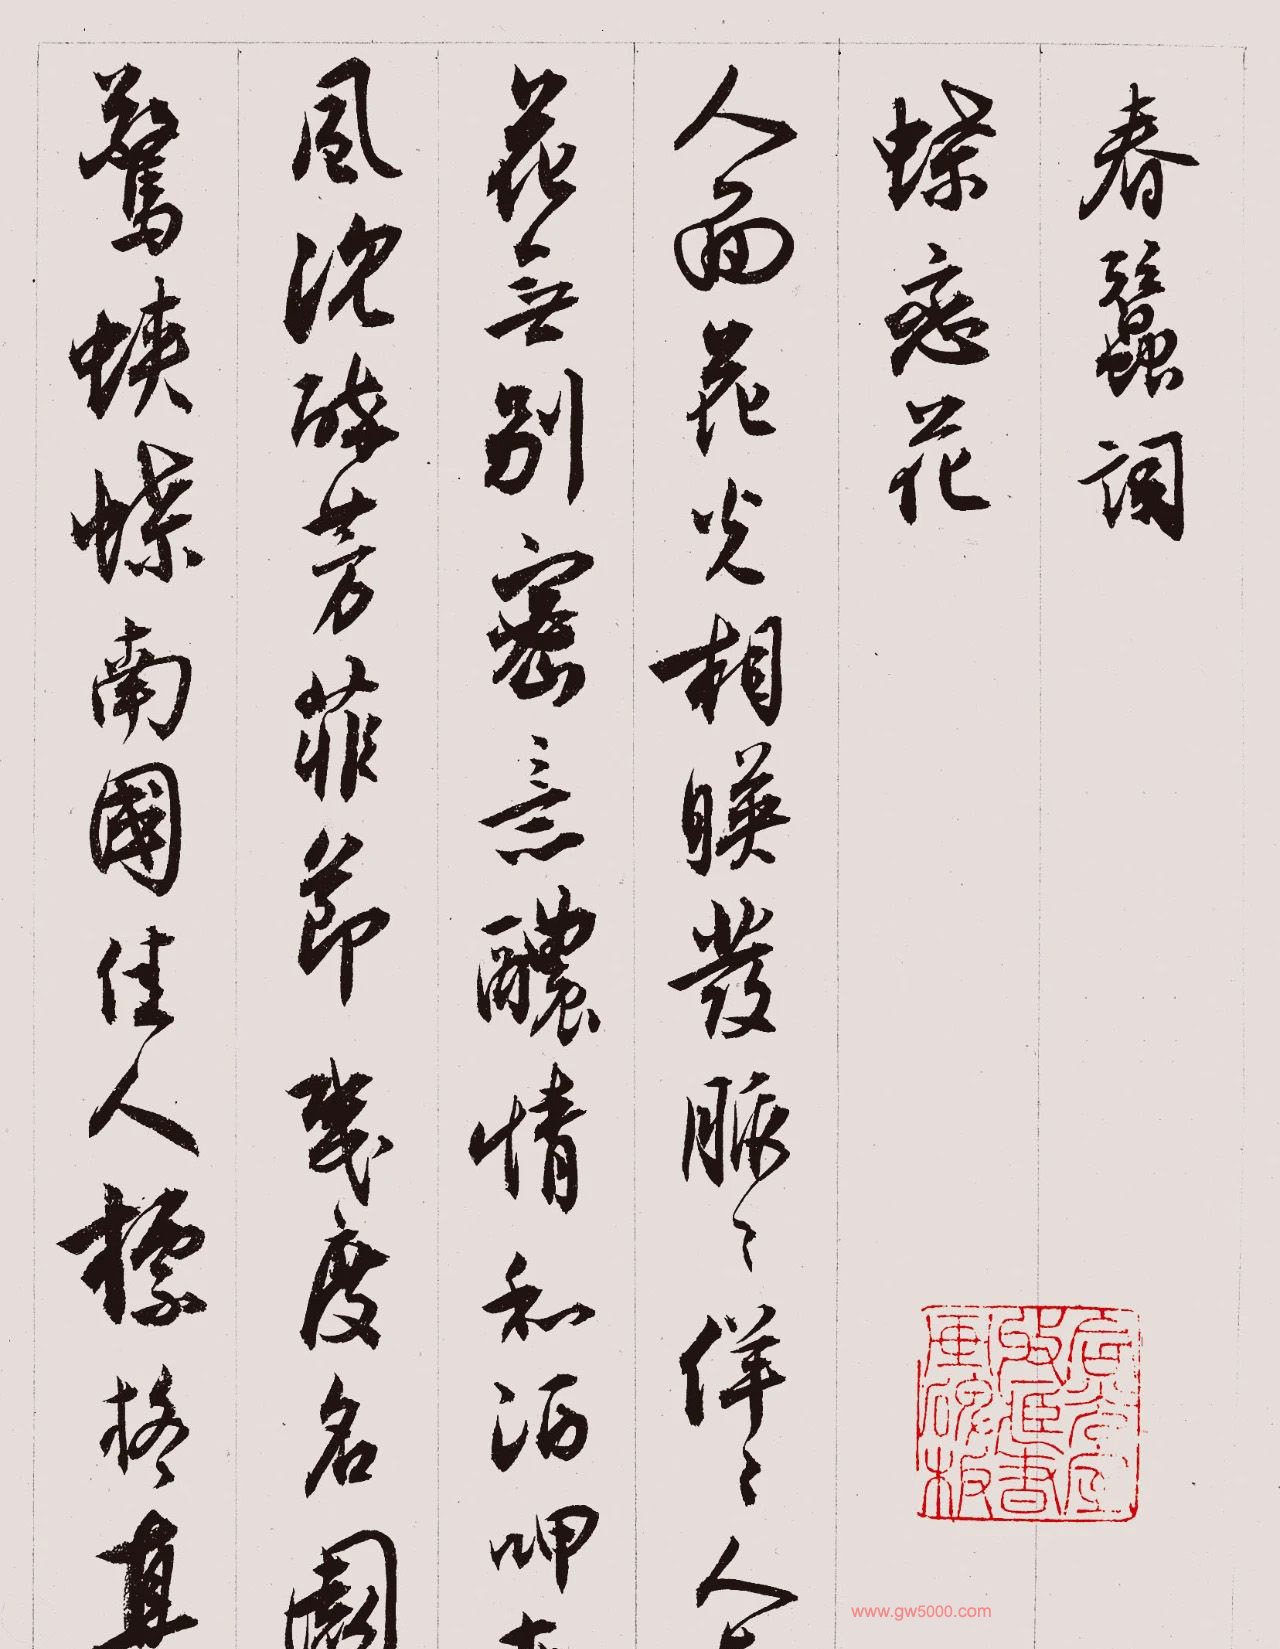 春蠶詞
蝶戀花
人面花光相暎發脈〻佯〻人
花無别密意醲情和酒呷
風沈醉芳菲節幾度名園
驚蛺蝶南國佳人標格真
www.gw5000.com